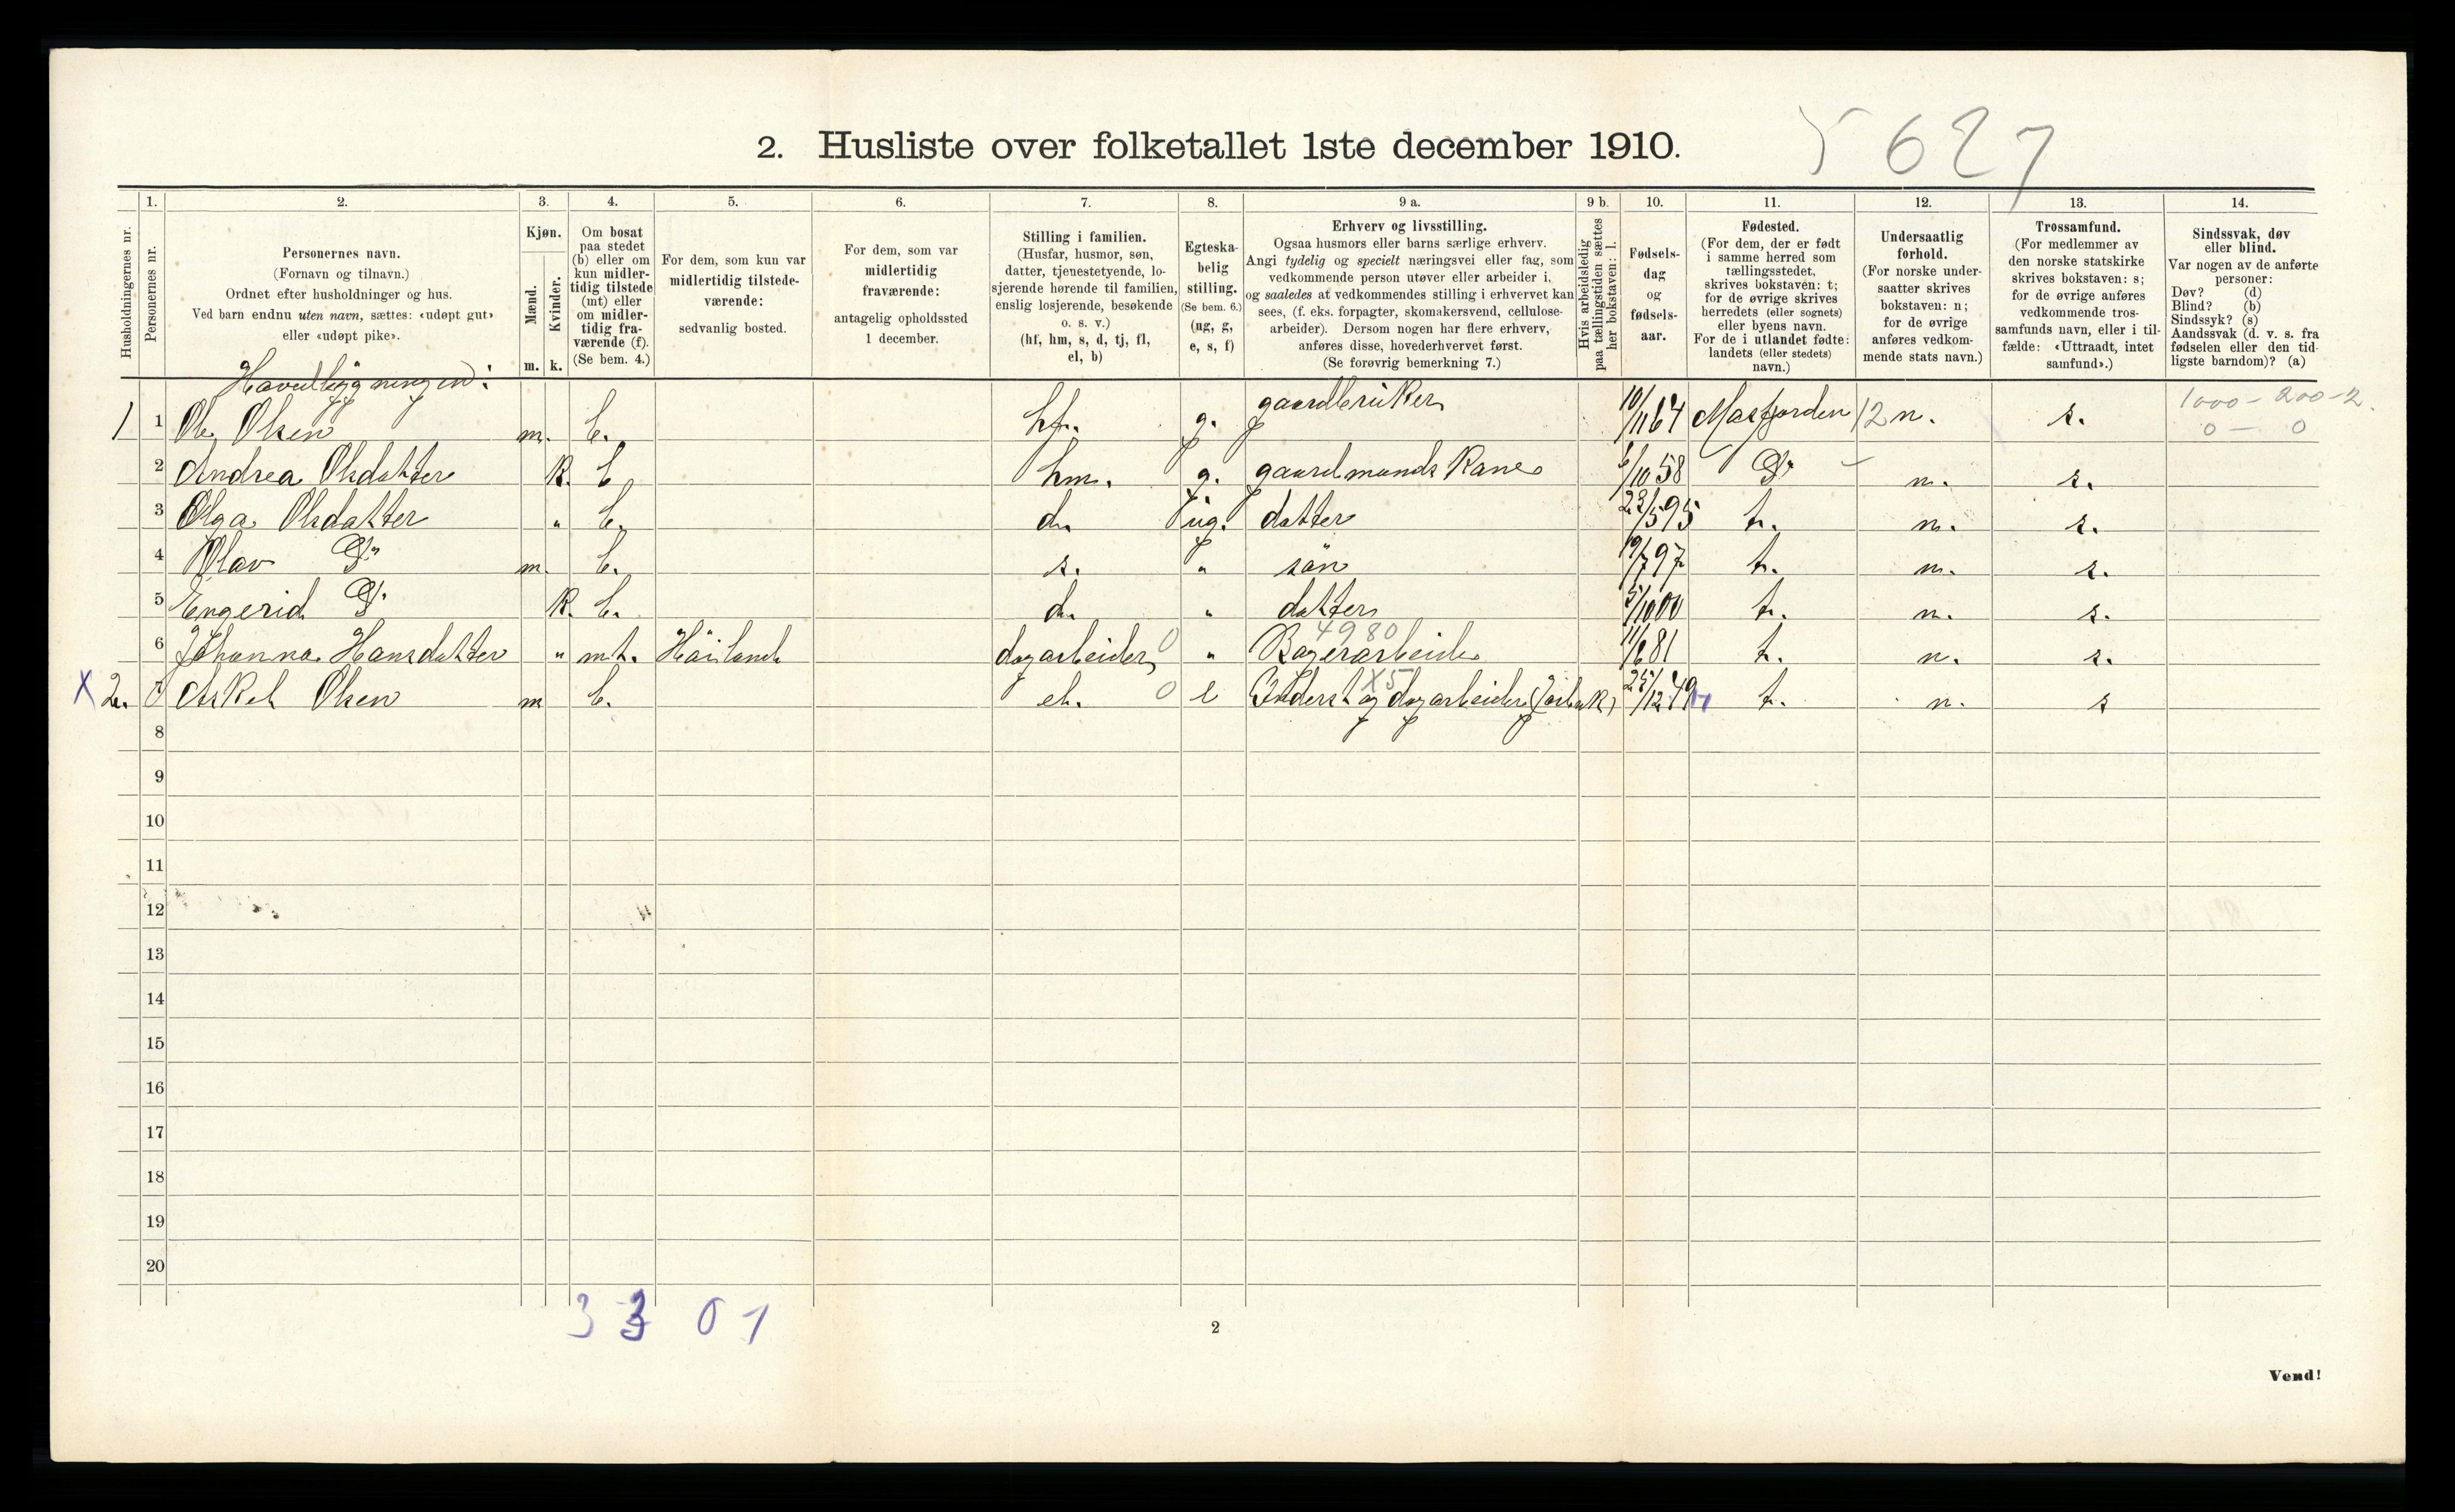 5 627
2. Husliste over folketallet 1ste december 1910.
1. 2. 3. 4. 5. 6. 7. 8. 9 a. 9 b. 10. 11. 12. 13. 14.
Husholdningernes nr.
Personernes nr.
Personernes navn.
(Fornavn og tilnavn.)
Ordnet efter husholdninger og hus.
Ved barn endnu uten navn, sættes: «udøpt gut»
eller «udøpt pike».
Kjøn.
Mænd.
Kvinder.
m. k.
Om bosat
paa stedet
(b) eller om
kun midler-
tidig tilstede
(mt) eller
om midler-
tidig fra-
værende (f).
(Se bem. 4.)
For dem, som kun var
midlertidig tilstede-
værende:
sedvanlig bosted.
For dem, som var
midlertidig
fraværende:
antagelig opholdssted
1 december.
Stilling i familien.
(Husfar, husmor, søn,
datter, tjenestetyende, lo-
sjerende hørende til familien,
enslig losjerende, besøkende
o. s. v.)
(hf, hm, s, d, tj, fl,
el, b)
Egteska-
belig
stilling.
(Se bem. 6.)
(ug, g,
e, s, f)
Erhverv og livsstilling.
Ogsaa husmors eller barns særlige erhverv.
Angi tydelig og specielt næringsvei eller fag, som
vedkommende person utøver eller arbeider i,
og saaledes at vedkommendes stilling i erhvervet kan
sees, (f. eks. forpagter, skomakersvend, cellulose-
arbeider). Dersom nogen har flere erhverv,
anføres disse, hovederhvervet først.
(Se forøvrig bemerkning 7.)
Hvis arbeidsledig
paa tællingstiden sættes
her bokstaven: l.
Fødsels-
dag
og
fødsels-
aar.
Fødested.
(For dem, der er født
i samme herred som
tællingsstedet,
skrives bokstaven: t;
for de øvrige skrives
herredets (eller sognets)
eller byens navn.
For de i utlandet fødte:
landets (eller stedets)
navn.)
Undersaatlig
forhold.
(For norske under-
saatter skrives
bokstaven: n;
for de øvrige
anføres vedkom-
mende stats navn.)
Trossamfund.
(For medlemmer av
den norske statskirke
skrives bokstaven: s;
for de øvrige anføres
vedkommende tros-
samfunds navn, eller i til-
fælde: «Uttraadt, intet
samfund».)
Sindssvak, døv
eller blind.
Var nogen av de anførte
personer:
Døv? (d)
Blind? (b)
Sindssyk? (s)
Aandssvak (d. v. s. fra
fødselen eller den tid-
ligste barndom)? (a)
Havedbygningen:
1 1 Ole Olsen m. b. hf. g. gaardbruker 10/11 64 Masfjorden 12 n. s. 1000 - 200 - 2.
0 - 0
2 Andrea Olsdatter k. b. hm. g. gaardmands kane 6/10 58 Do n. s.
3 Olga Olsdatter " b. d. ug. datter 23/5 95 t. n. s.
4 Olav Do m. b. s. " sön 19/7 97 t. n. s.
5 Engerid Do k. b. d. " datter 5/10 00 t. n. s.
4980
6 Johanna Hansdatter " mt. Häiland dagarbeider 0 " 11/6 81 t. n. s.
X 2. 7 Askel Olsen m b. el. 0 e Inderst og dagarbeider (jorbruk) X5 25/12 49 t. n. s
8
9
10
11
12
13
14
15
16
17
18
19
20
3 3 0 1
2
Vend!